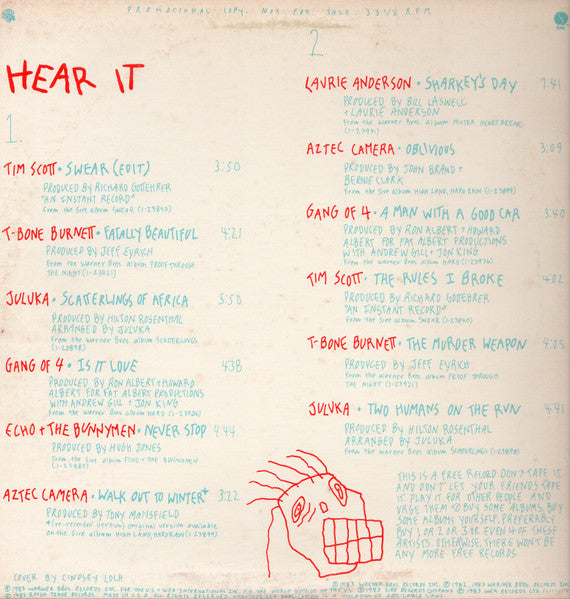 PROMOTIONAL COPY. NOT FOR SALE. 33 1/3 R.P.M.
HEAR IT
1.
TIM SCOTT • SWEAR (EDIT) 3:50
PRODUCED BY RICHARD GOTTEHRER
"AN INSTANT RECORD"
From the Sire album SWEAR (1-23840)
T-BONE BURNETT • FATALLY BEAUTIFUL 4:21
PRODUCED BY JEFF EYRICH
From the Warner Bros. album PROOF THROUGH
THE NIGHT (1-23921)
JULUKA • SCATTERLINGS OF AFRICA 5:50
PRODUCED BY HILTON ROSENTHAL
ARRANGED BY JULUKA
From the Warner Bros. album SCATTERLINGS
(1-23898)
GANG OF 4 • IS IT LOVE 4:38
PRODUCED BY RON ALBERT + HOWARD
ALBERT FOR FAT ALBERT PRODUCTIONS
WITH ANDREW GILL + JON KING
From the Warner Bros. album HARD (1-23936)
ECHO + THE BUNNYMEN • NEVER STOP 4:44
PRODUCED BY HUGH JONES
From the Sire album ECHO + THE BUNNYMEN
AZTEC CAMERA • WALK OUT TO WINTER* 3:22
PRODUCED BY TONY MANSFIELD
*(re-recorded version) original version available
on the Sire album HIGH LAND, HARD RAIN (1-23899)
COVER BY LINDSEY LOCH
2
LAURIE ANDERSON • SHARKEY'S DAY 7:41
PRODUCED BY BILL LASWELL
+ LAURIE ANDERSON
From the Warner Bros. Album MISTER HEARTBREAK
AZTEC CAMERA • OBLIVIOUS 3:09
PRODUCED BY JOHN BRAND +
BERNIE CLARK
From the Sire album HIGH LAND, HARD RAIN (1-23899)
GANG OF 4 • A MAN WITH A GOOD CAR 3:40
PRODUCED BY RON ALBERT + HOWARD
ALBERT FOR FAT ALBERT PRODUCTIONS
WITH ANDREW GILL + JON KING
From the Warner Bros. album HARD (1-23936)
TIM SCOTT • THE RULES I BROKE 4:02
PRODUCED BY RICHARD GOTTEHRER
"AN INSTANT RECORD"
From the Sire album SWEAR (1-23840)
T-BONE BURNETT • THE MURDER WEAPON 4:05
PRODUCED BY JEFF EYRICH
From the Warner Bros. album PROOF THROUGH
THE NIGHT (1-23921)
JULUKA • TWO HUMANS ON THE RUN 4:41
PRODUCED BY HILTON ROSENTHAL
ARRANGED BY JULUKA
From the Warner Bros. album SCATTERLINGS (1-23898)
THIS IS A FREE RECORD. DON'T TAPE IT
AND DON'T LET YOUR FRIENDS TAPE
IT. PLAY IT FOR OTHER PEOPLE AND
URGE THEM TO BUY SOME ALBUMS. BUY
SOME ALBUMS YOURSELF, PREFERABLY
BUY 1 OR 2 OR 3 OR EVEN 4 OF THESE
ARTISTS. OTHERWISE, THERE WON'T BE
ANY MORE FREE RECORDS.